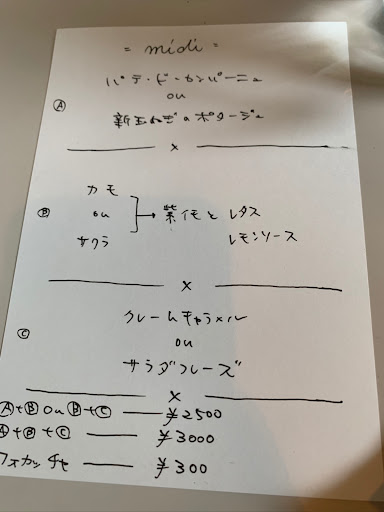 = midi =
パテ・ド・カンパーニュ
ou
Ⓐ
新玉ねぎのポタージュ
x
カモ
Ⓑ ou → 紫イモと レタス
サクラ レモンソース
x
Ⓒ
クレームキャラメル
ou
サラダフレーズ
x
Ⓐ+Ⓑ ou Ⓑ+Ⓒ — ¥2500
Ⓐ+Ⓑ+Ⓒ — ¥3000
フォカッチャ — ¥300